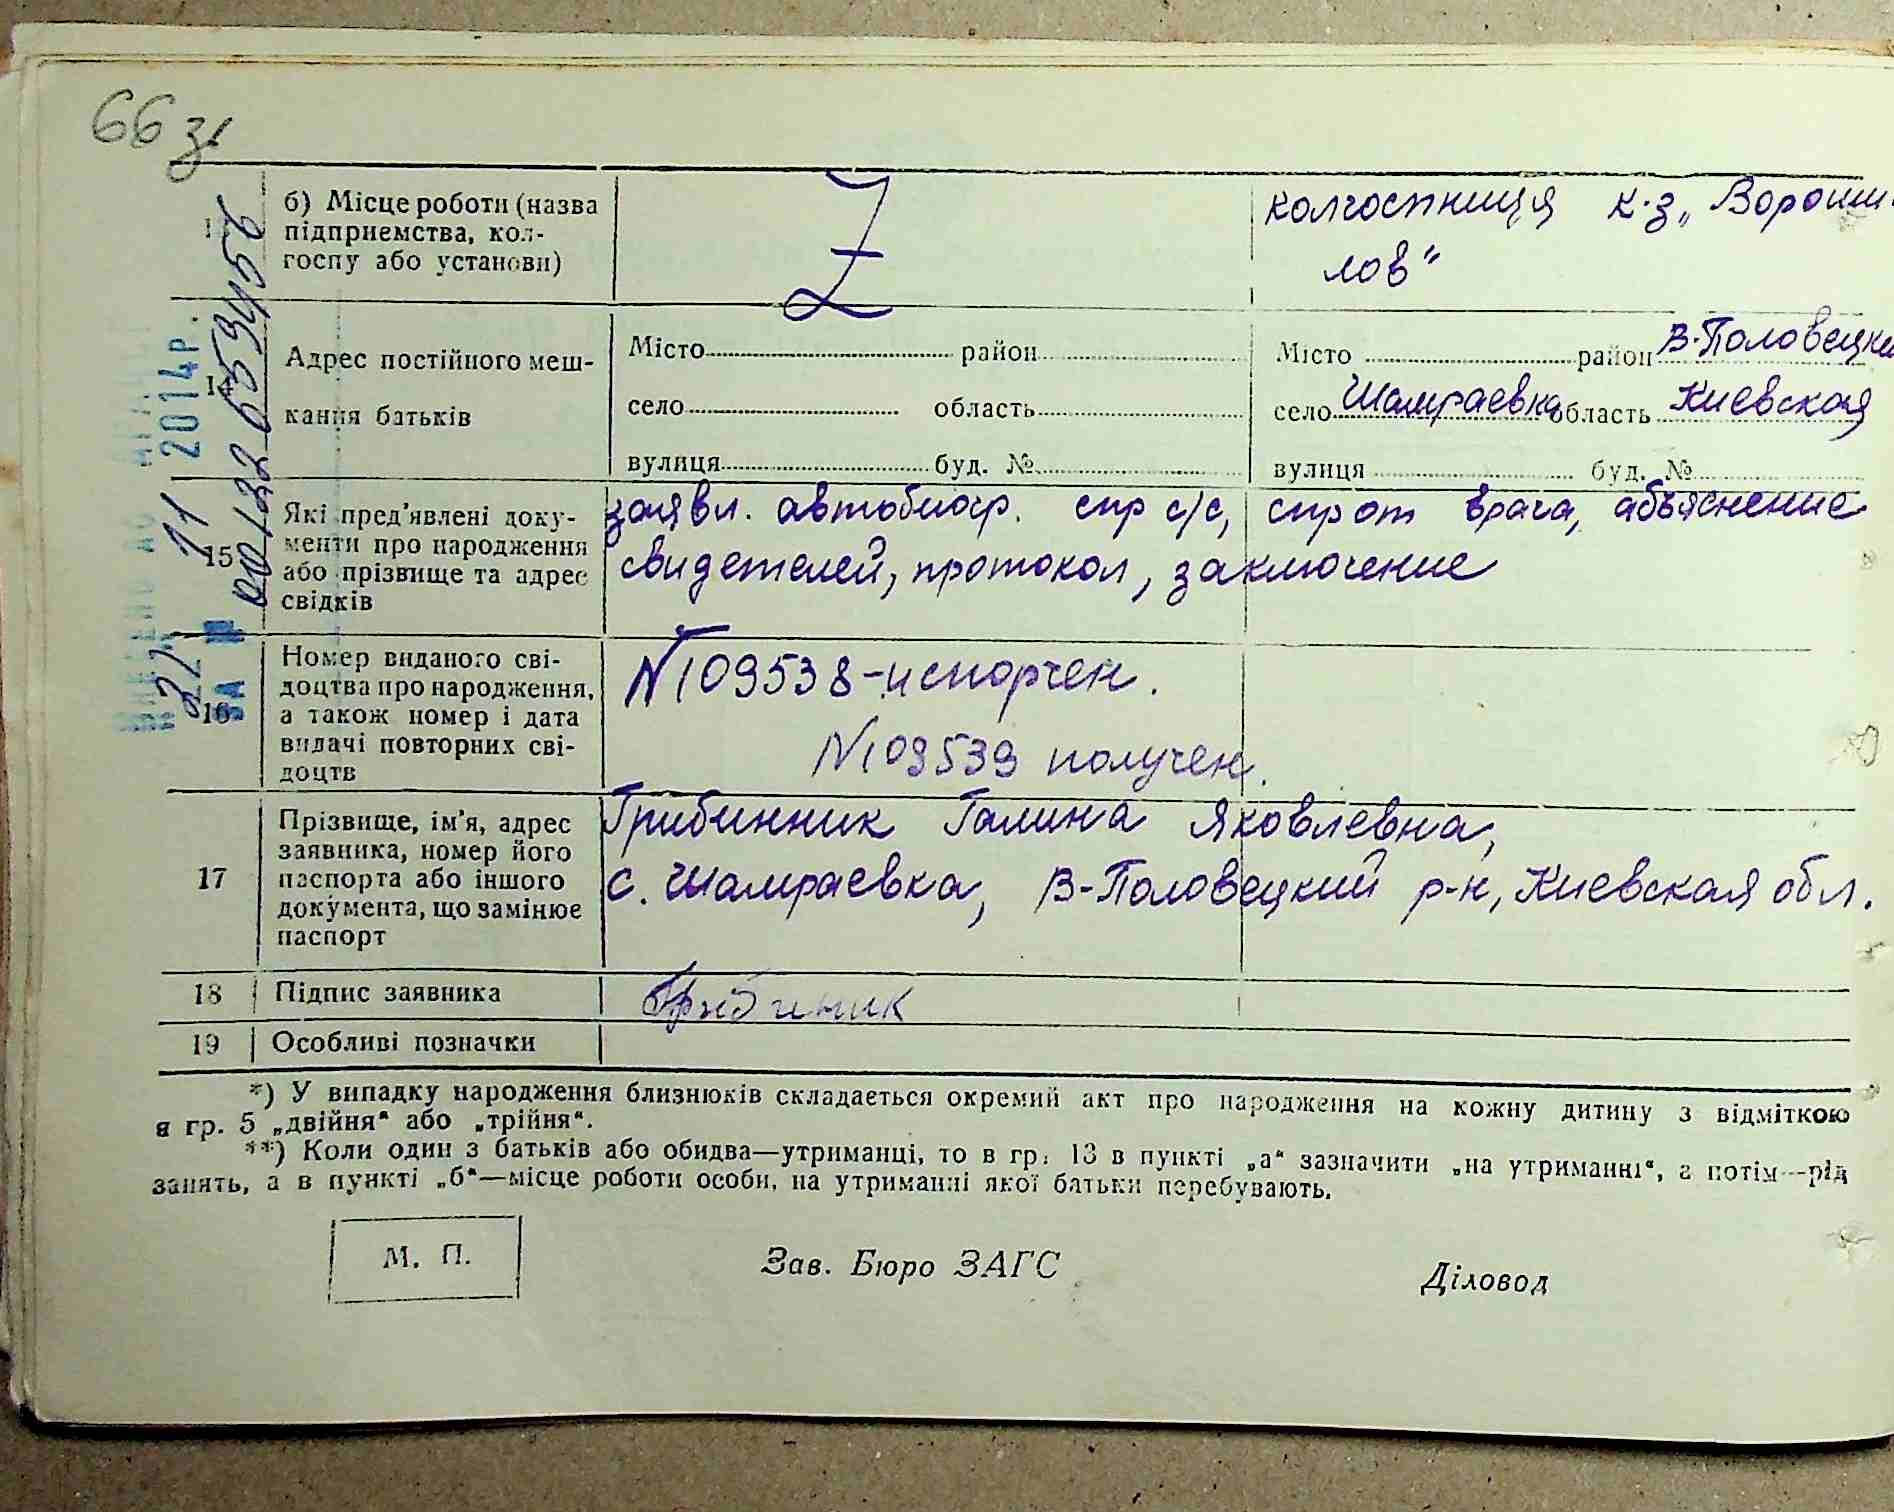 66 зı
б) Місце роботи (назва
підприємства, кол-
госпу або установи)
колгоспниця к-з „Вороши-
лов"
14
Адрес постійного меш-
кання батьків
Місто район
село область
вулиця буд. №
Місто район В-Половецки
село Шамраевка область Киевская
вулиця буд. №
15
Які пред'явлені доку-
менти про народження
або прізвище та адрес
свідків
заявл. автобиогр. спр с/с, спр от врача, абъяснение
свидетелей, протокол, заключение
16
Номер виданого сві-
доцтва про народження,
а також номер і дата
видачі повторних сві-
доцтв
N109538-испорчен.
N109539 получен.
17
Прізвище, ім'я, адрес
заявника, номер його
паспорта або іншого
документа, що замінює
паспорт
Грибинник Галина Яковлевна,
с. Шамраевка, В-Половецкий р-н, Киевская обл.
18 Підпис заявника
Грибиник
19 Особливі позначки
*) У випадку народження близнюків складається окремий акт про народження на кожну дитину з відміткою
в гр. 5 „двійня“ або „трійня“.
**) Коли один з батьків або обидва—утриманці, то в гр. 13 в пункті „а“ зазначити „на утриманні“, а потім—рід
занять, а в пункті „б“—місце роботи особи, на утриманні якої батьки перебувають.
М. П.
Зав. Бюро ЗАГС
Діловод
22 11 2014р.
00132659456